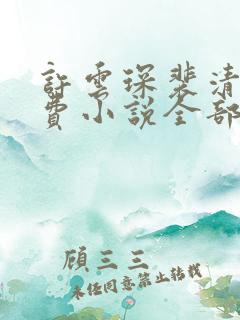 許雲琛裴清
費小說全部
顧三三
未經同意禁止轉載